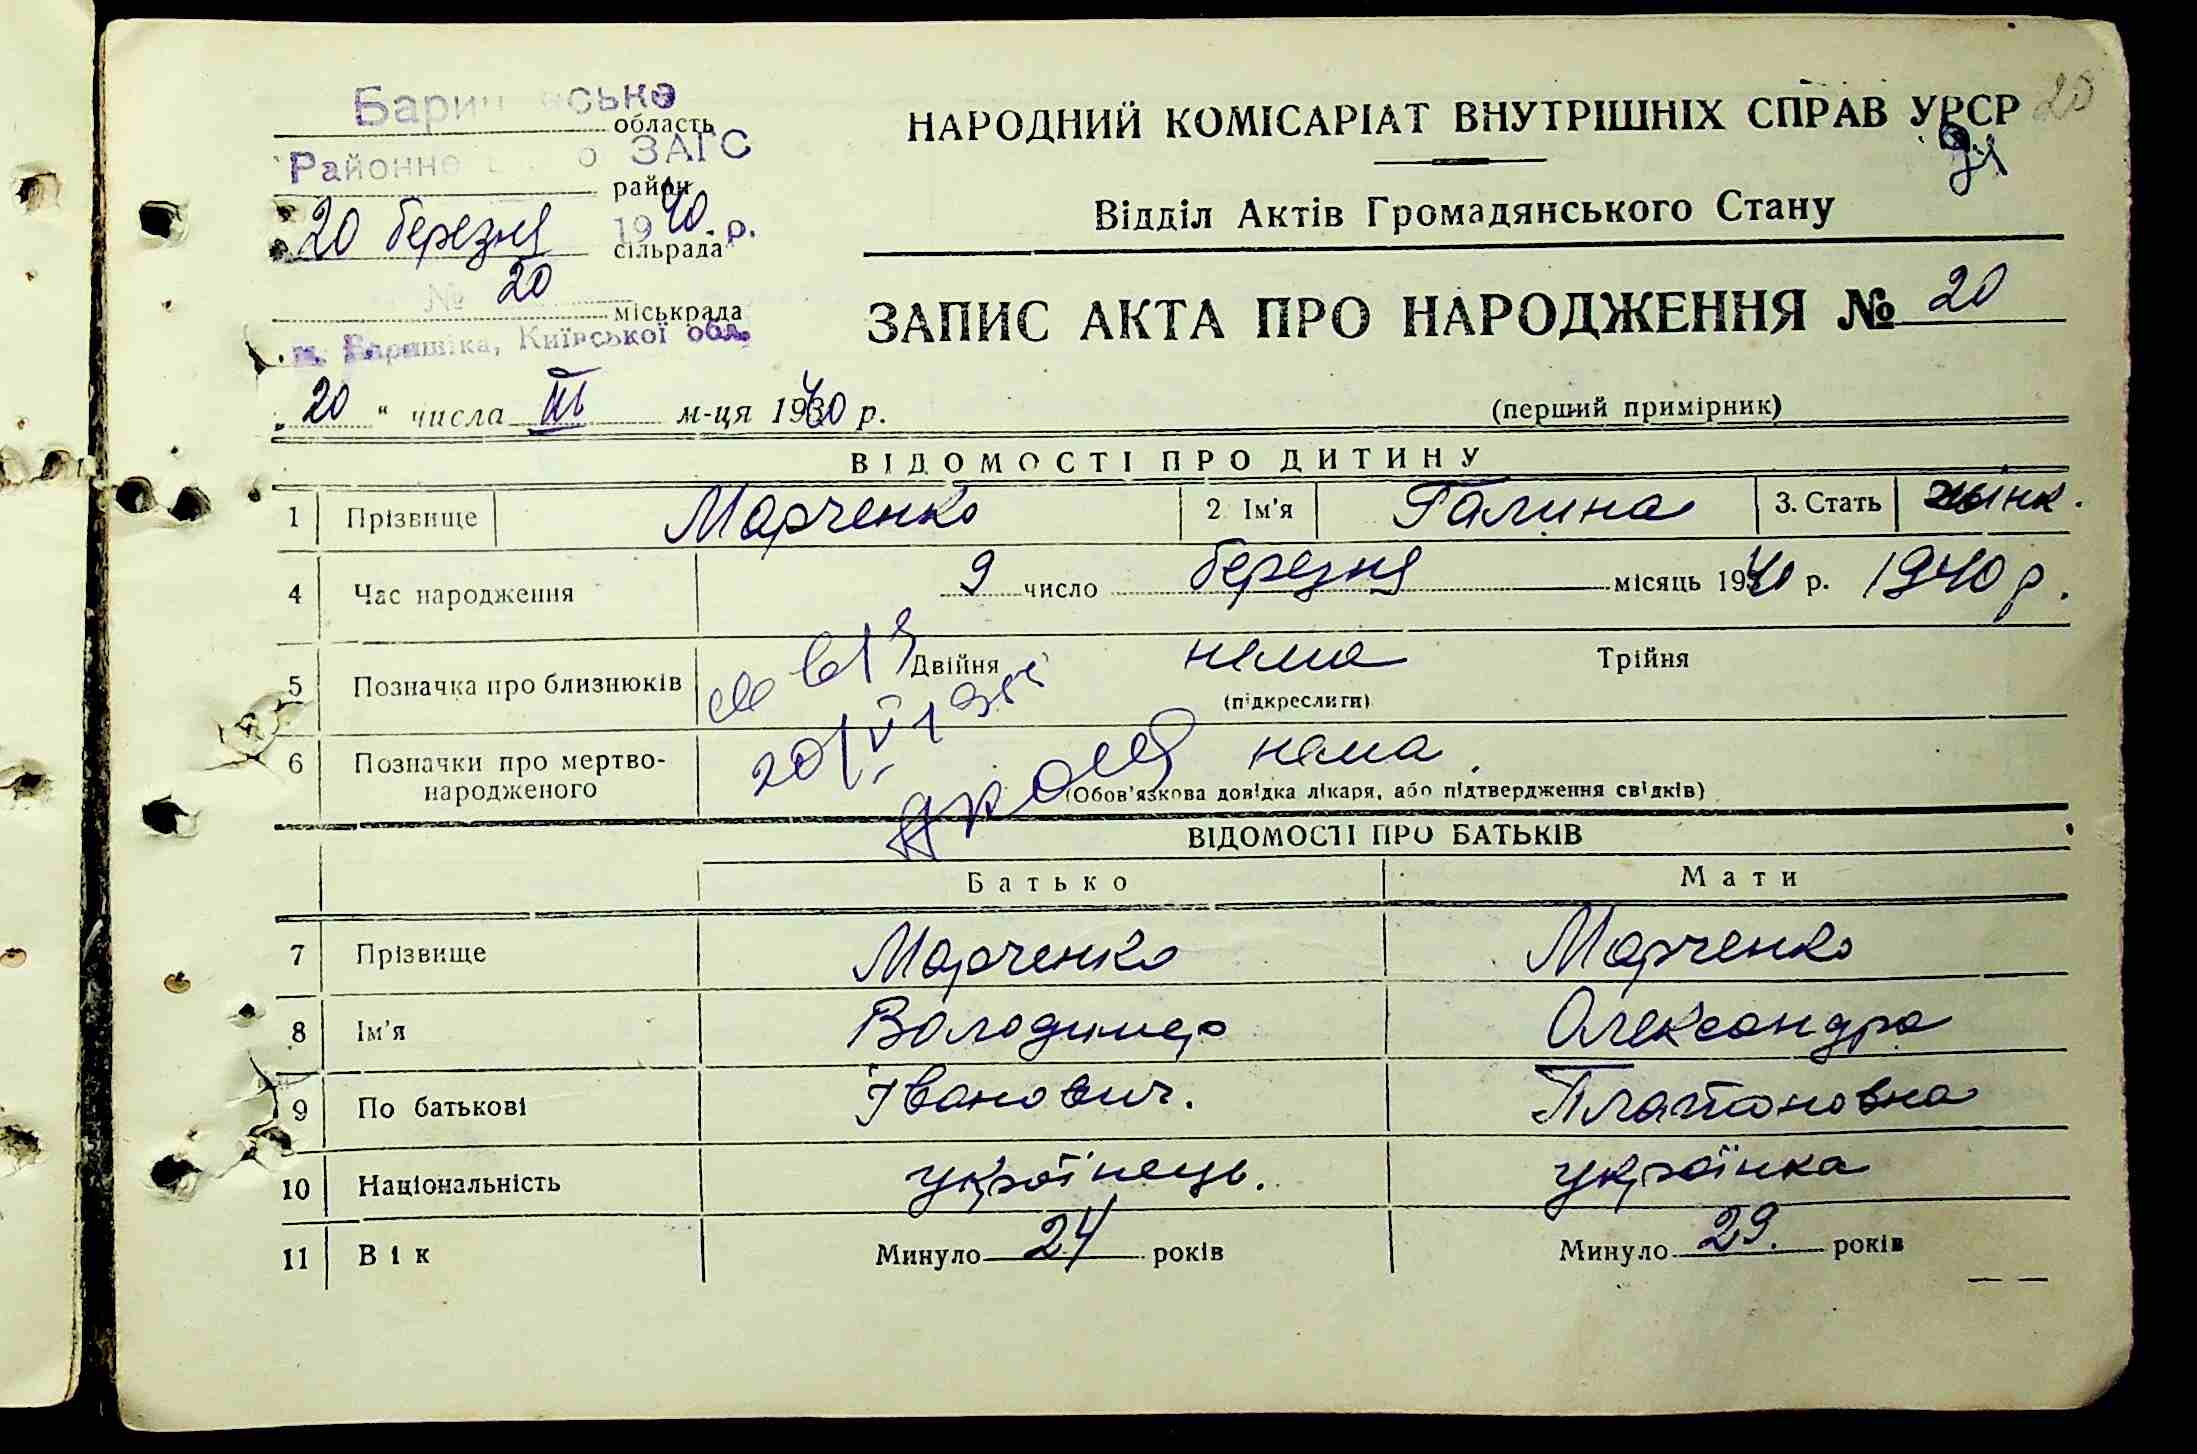 область
Районне ЗАГС
район
20 березня 1940 р.
сільрада
№ 20
міськрада
м. Баришівка, Київської обл.
НАРОДНИЙ КОМІСАРІАТ ВНУТРІШНІХ СПРАВ УРСР 20
Відділ Актів Громадянського Стану
ЗАПИС АКТА ПРО НАРОДЖЕННЯ № 20
20 " числа III м-ця 1940 р.
(перший примірник)
ВІДОМОСТІ ПРО ДИТИНУ
1 Прізвище Марченко 2 Ім'я Галина 3. Стать жінк.
4 Час народження 9 число березня місяць 1940 р. 1940 р.
5 Позначка про близнюків Двійня нема Трійня
(підкреслити)
6 Позначки про мертво-народженого нема
(Обов'язкова довідка лікаря, або підтвердження свідків)
ВІДОМОСТІ ПРО БАТЬКІВ
Батько Мати
7 Прізвище Марченко Марченко
8 Ім'я Володимер Олександра
9 По батькові Іванович. Платоновна
10 Національність українець. українка
11 Вік Минуло 24 років Минуло 29. років